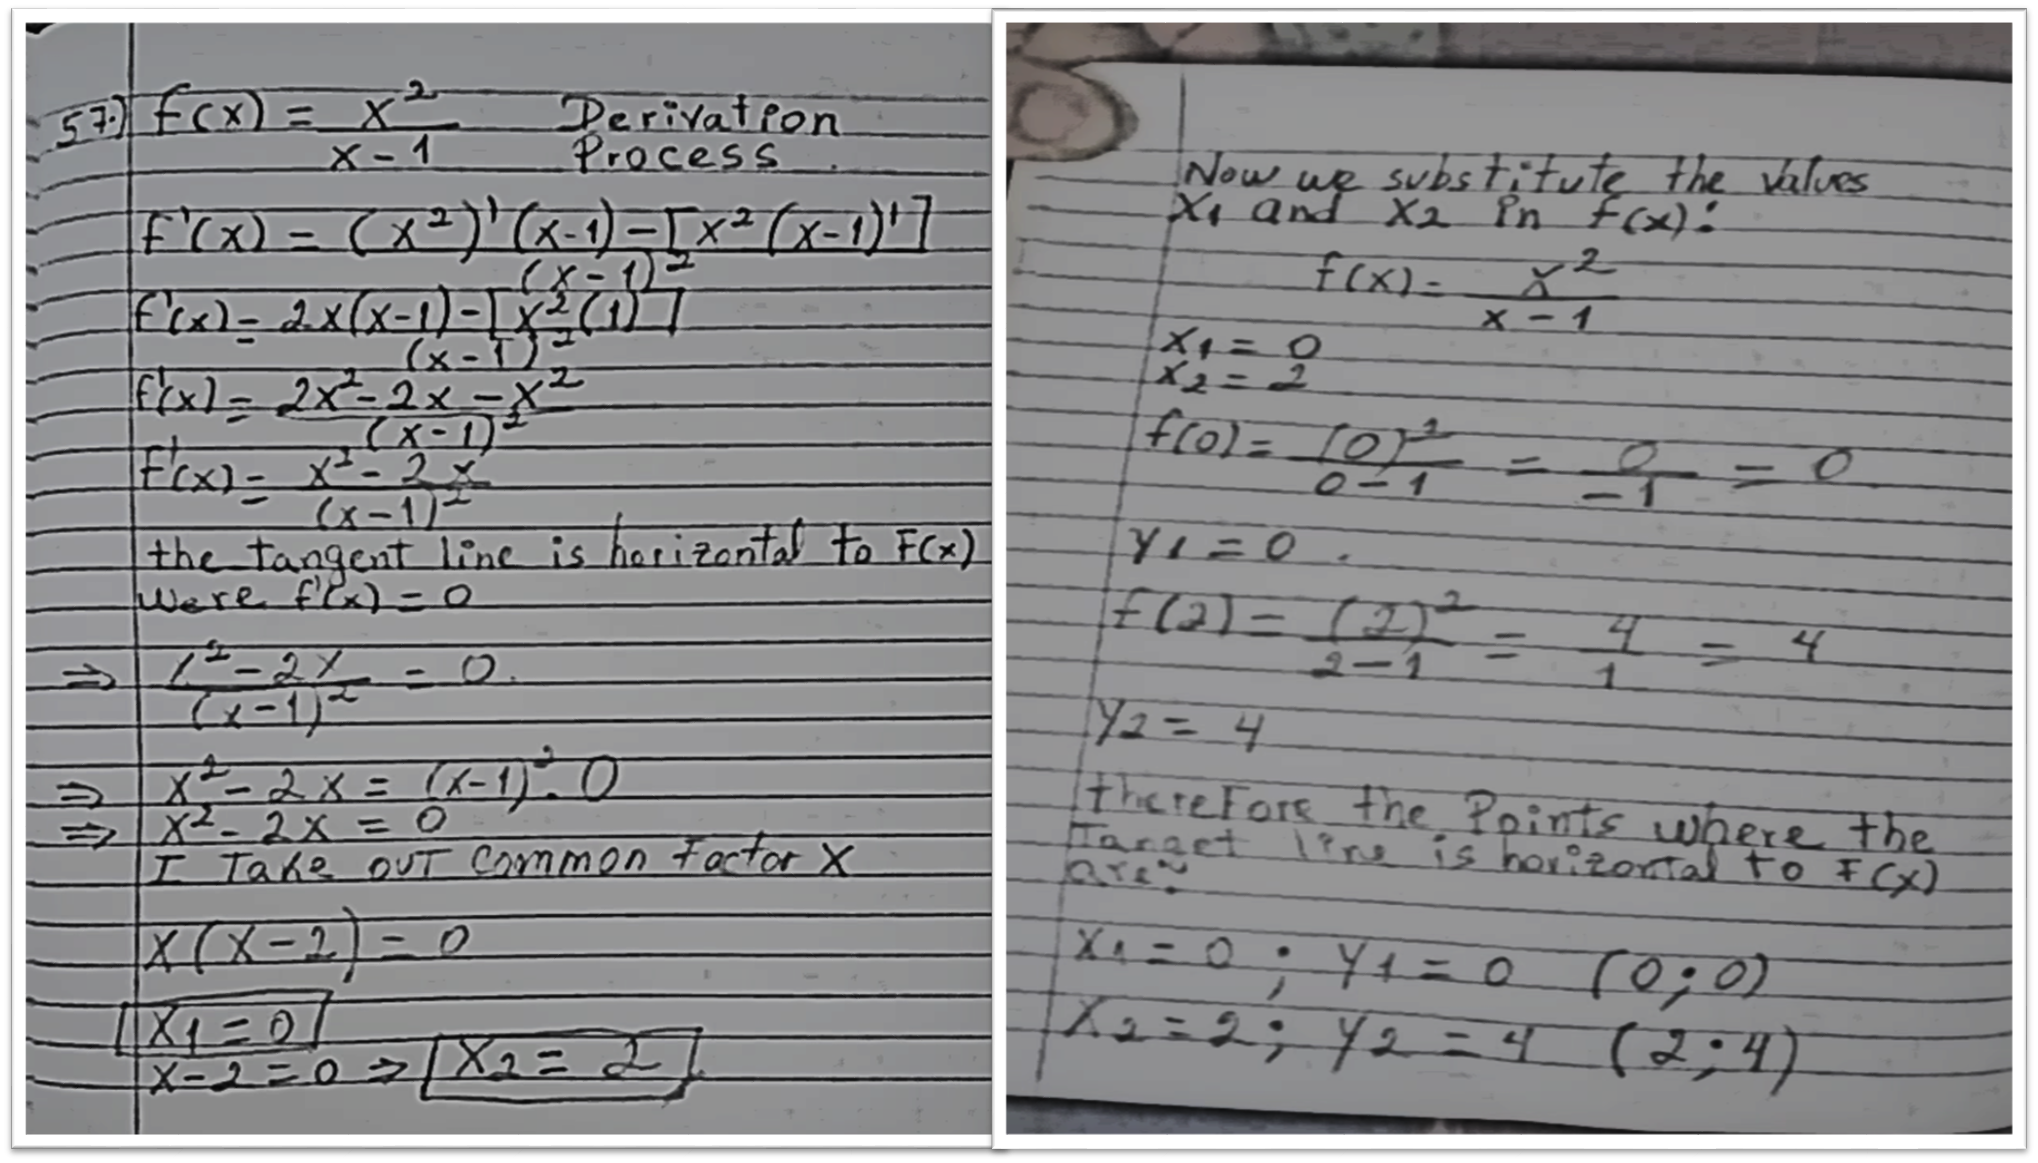 57.) f(x) = x²/(x-1) Derivation Process.
f'(x) = (x²)'(x-1) - [x²(x-1)'] / (x-1)²
f'(x) = 2x(x-1) - [x²(1)] / (x-1)²
f'(x) = 2x² - 2x - x² / (x-1)²
f'(x) = x² - 2x / (x-1)²
the tangent line is horizontal to F(x)
were f'(x) = 0
⇒ x² - 2x / (x-1)² = 0.
⇒ x² - 2x = (x-1)² . 0
⇒ x² - 2x = 0
I Take out Common Factor X
x(x-2) = 0
x1 = 0
x-2 = 0 ⇒ x2 = 2
Now we substitute the values
x1 and x2 in f(x):
f(x) = x² / x-1
x1 = 0
x2 = 2
f(0) = (0)² / 0-1 = 0 / -1 = 0
y1 = 0.
f(2) = (2)² / 2-1 = 4 / 1 = 4
y2 = 4
therefore the Points where the
Tanget line is horizontal to F(x)
are:
x1 = 0 ; y1 = 0 (0;0)
x2 = 2 ; y2 = 4 (2;4)